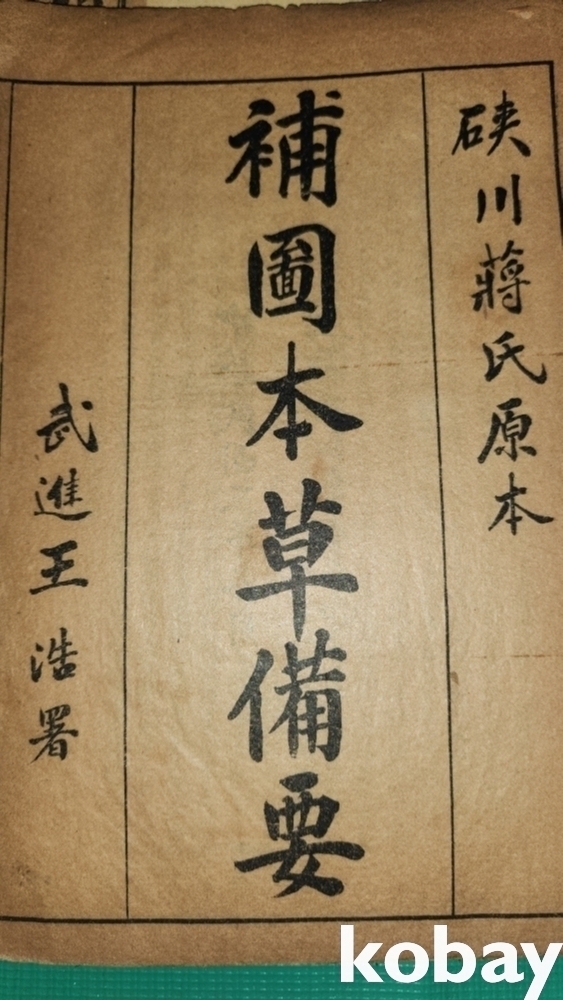 硤川蔣氏原本
補圖本草備要
武進王浩署
kobay